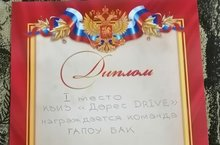 Диплом
I место
КВИЗ « Дорес DRIVE»
награждается команда
ГАПОУ БАК